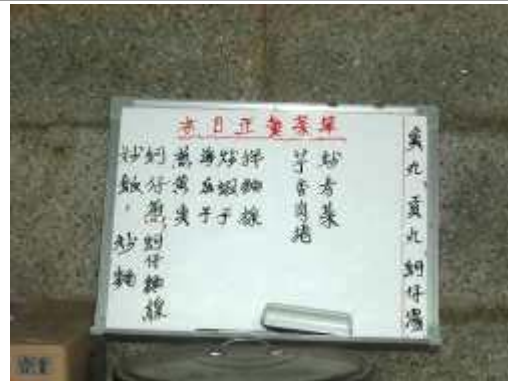 当日正餐菜單
貢丸、貢丸蚵仔湯
炒青菜
芋香肉
麵線
炸蝦子
海瓜子
煎黃魚
蚵仔煎,蚵仔麵線
炒飯,炒麵